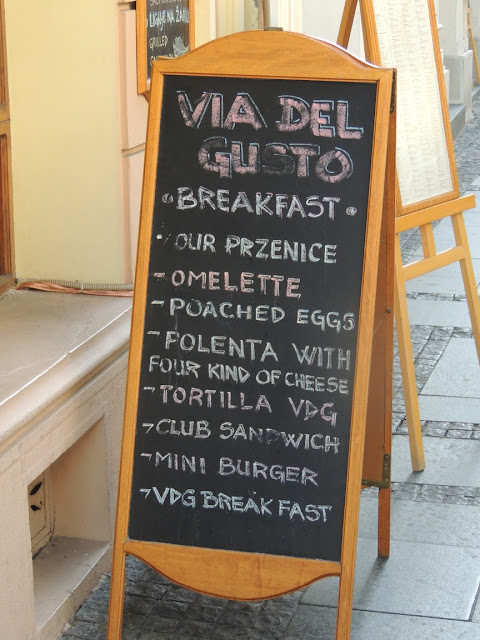 LIGNJE NA ŽARU
GRILLED
VIA DEL
GUSTO
• BREAKFAST •
• OUR PRZENICE
- OMELETTE
- POACHED EGGS
- POLENTA WITH
FOUR KIND OF CHEESE
- TORTILLA VDG
- CLUB SANDWICH
- MINI BURGER
- VDG BREAKFAST